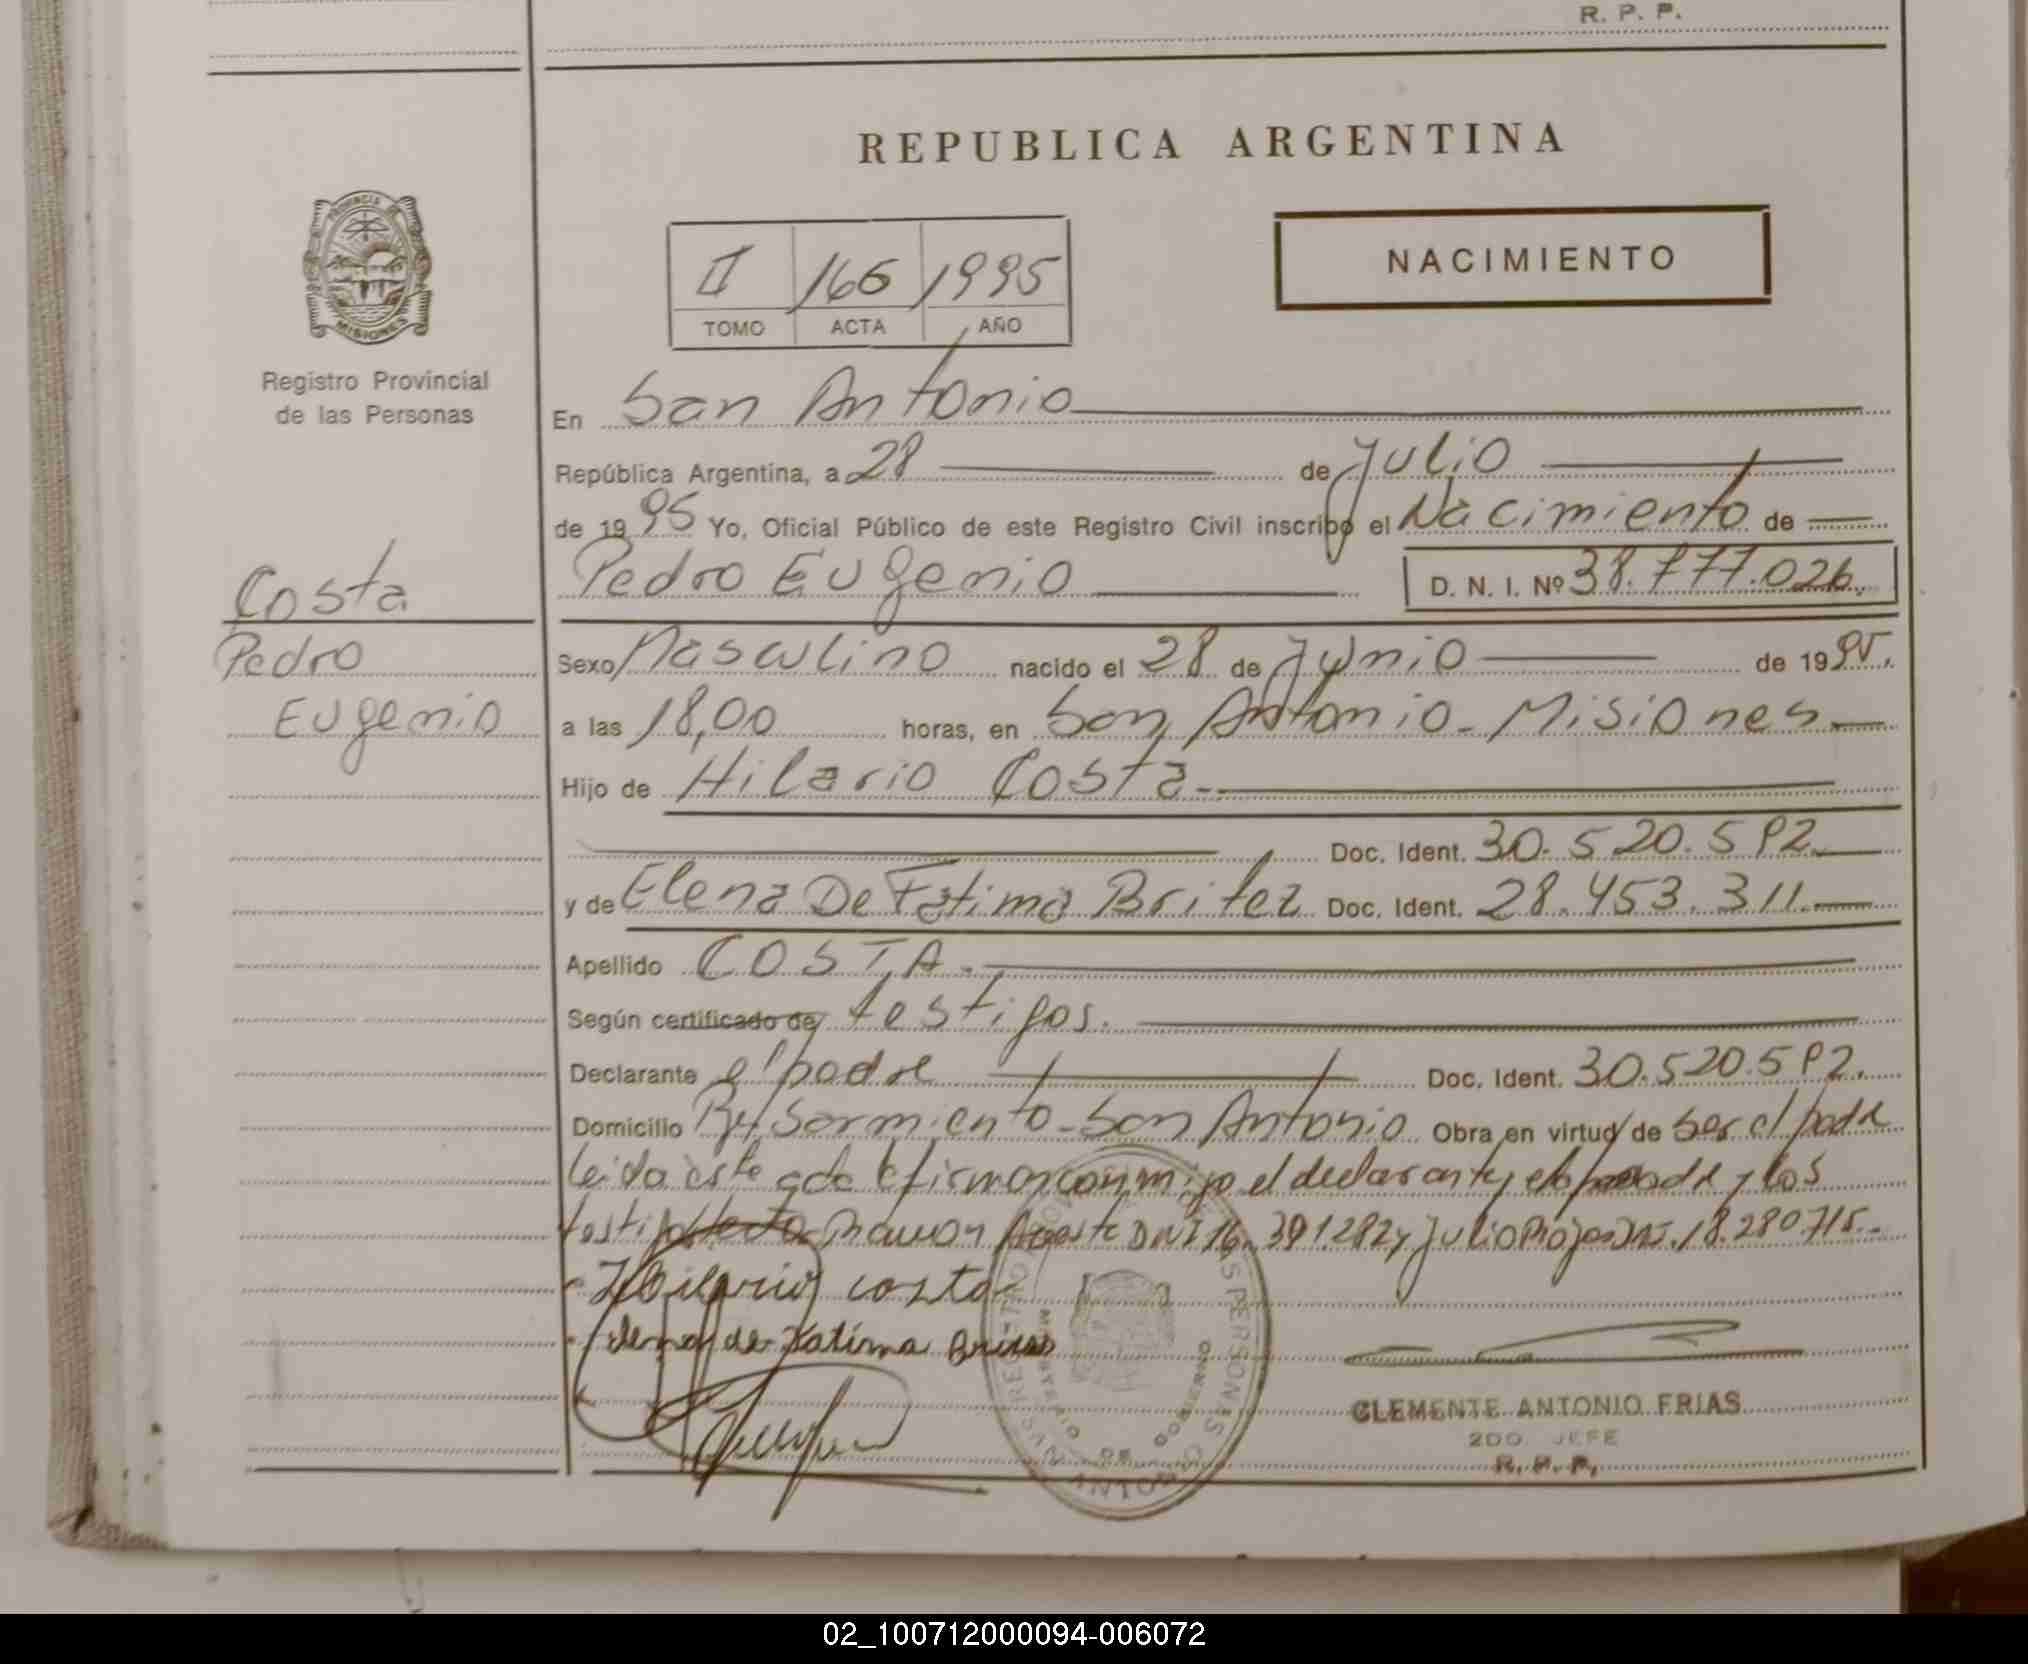 R. P. P.
REPUBLICA ARGENTINA
PROVINCIA DE
MISIONES
II 166 1995
TOMO ACTA AÑO
NACIMIENTO
Registro Provincial
de las Personas
En San Antonio
República Argentina, a 28 de Julio
de 1995 Yo, Oficial Público de este Registro Civil inscribo el Nacimiento de
Costa
Pedro Eugenio D. N. I. Nº 38.777.026
Pedro
Sexo Masculino nacido el 28 de Junio de 1995.
Eugenio
a las 18,00 horas, en San Antonio - Misiones
Hijo de Hilario Costa
Doc. Ident. 30.520.592
y de Elena De Fatima Britez Doc. Ident. 28.453.311.
Apellido COSTA.
Según certificado de testigos.
Declarante el padre Doc. Ident. 30.520.592.
Domicilio Sarmiento - San Antonio Obra en virtud de ser el padre
leida este acta firman conmigo el declarante, y los
Ramon DNI 16.391.282 y Julio Rojas DNI.18.280.715.-
Hilario costa
Elena de Fatima Britez
REGISTRO DE LAS PERSONAS
MINISTERIO DE GOBIERNO
SAN ANTONIO
CLEMENTE ANTONIO FRIAS
2DO. JEFE
R. P. P.
02_100712000094-006072